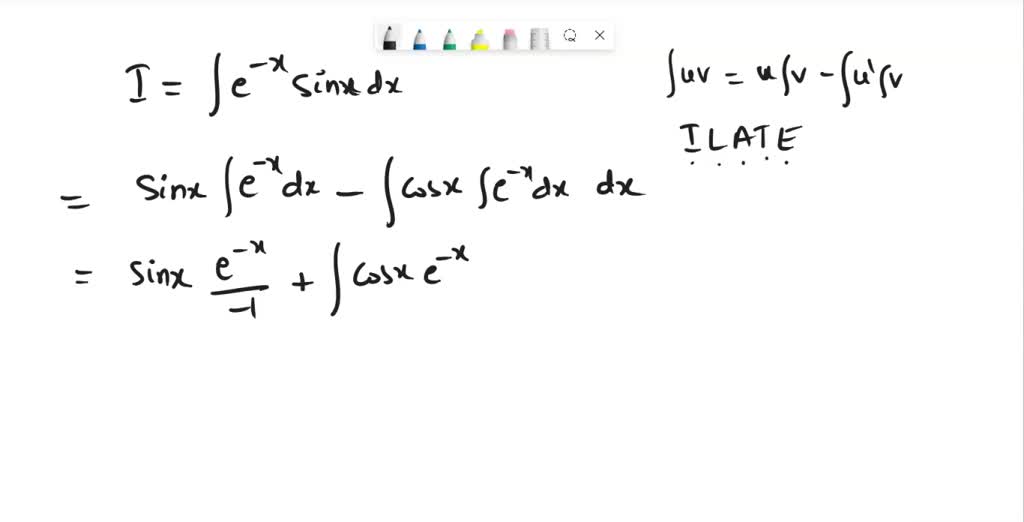 I = ∫e^{-x} sinx dx
∫uv = u∫v - ∫u'∫v
ILATE
= sinx ∫e^{-x}dx - ∫cosx ∫e^{-x}dx dx
= sinx e^{-x}/-1 + ∫cosx e^{-x}